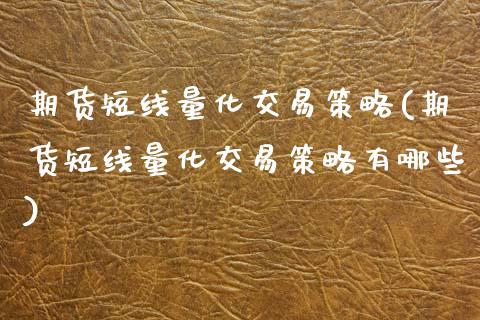 期货短线量化交易策略(期
货短线量化交易策略有哪些
)